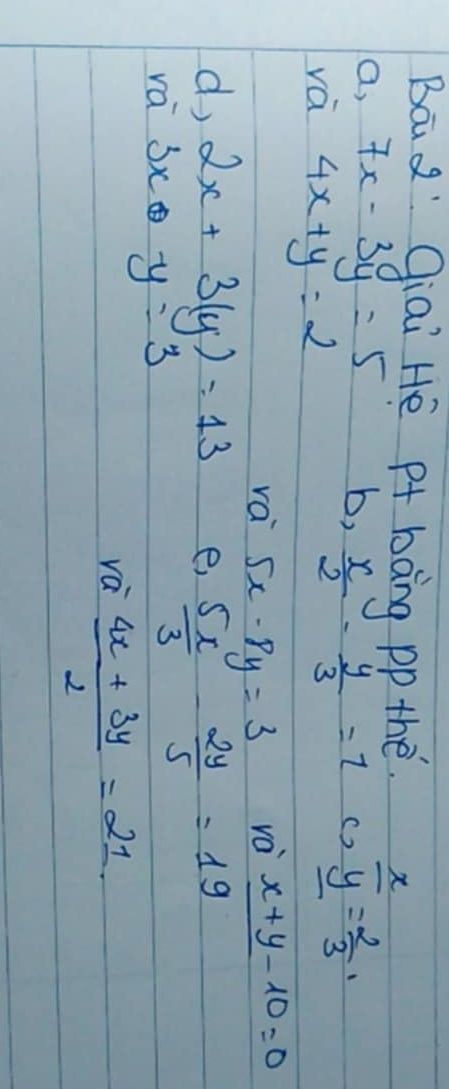 Bài 2: Giải Hệ pt bằng pp thế.
a, 7x - 3y = 5 b, x/2 - y/3 = 1 c, x/y = 2/3.
và 4x+y = 2
và 5x - 8y = 3 và x+y - 10 = 0
d, 2x + 3(y) = 13 e, 5x/3 - 2y/5 = 19
và 3x - y = 3
và 4x + 3y/2 = 21